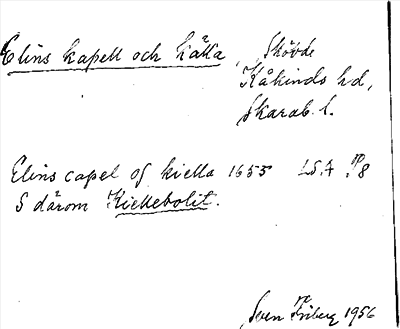 Elins kapell och källa, Skövde
Kåkinds hd,
Skarab. l.
Elins capel of kiella 1655 LSA P8
S därom Kiellebolit.
Sven Friberg 1956